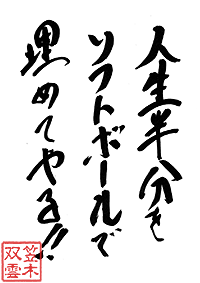 人生半分を
ソフトボールで
埋めてやる!!
笠木
双雲